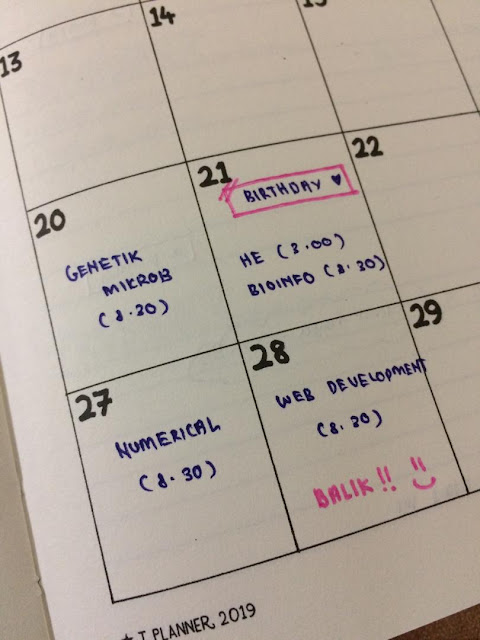 13
14
15
20
GENETIK
MIKROB
(8.30)
21
BIRTHDAY ♥
HE (3.00)
BIOINFO (8.30)
22
27
NUMERICAL
(8.30)
28
WEB DEVELOPMENT
(8.30)
BALIK!! :)
29
★ T PLANNER, 2019